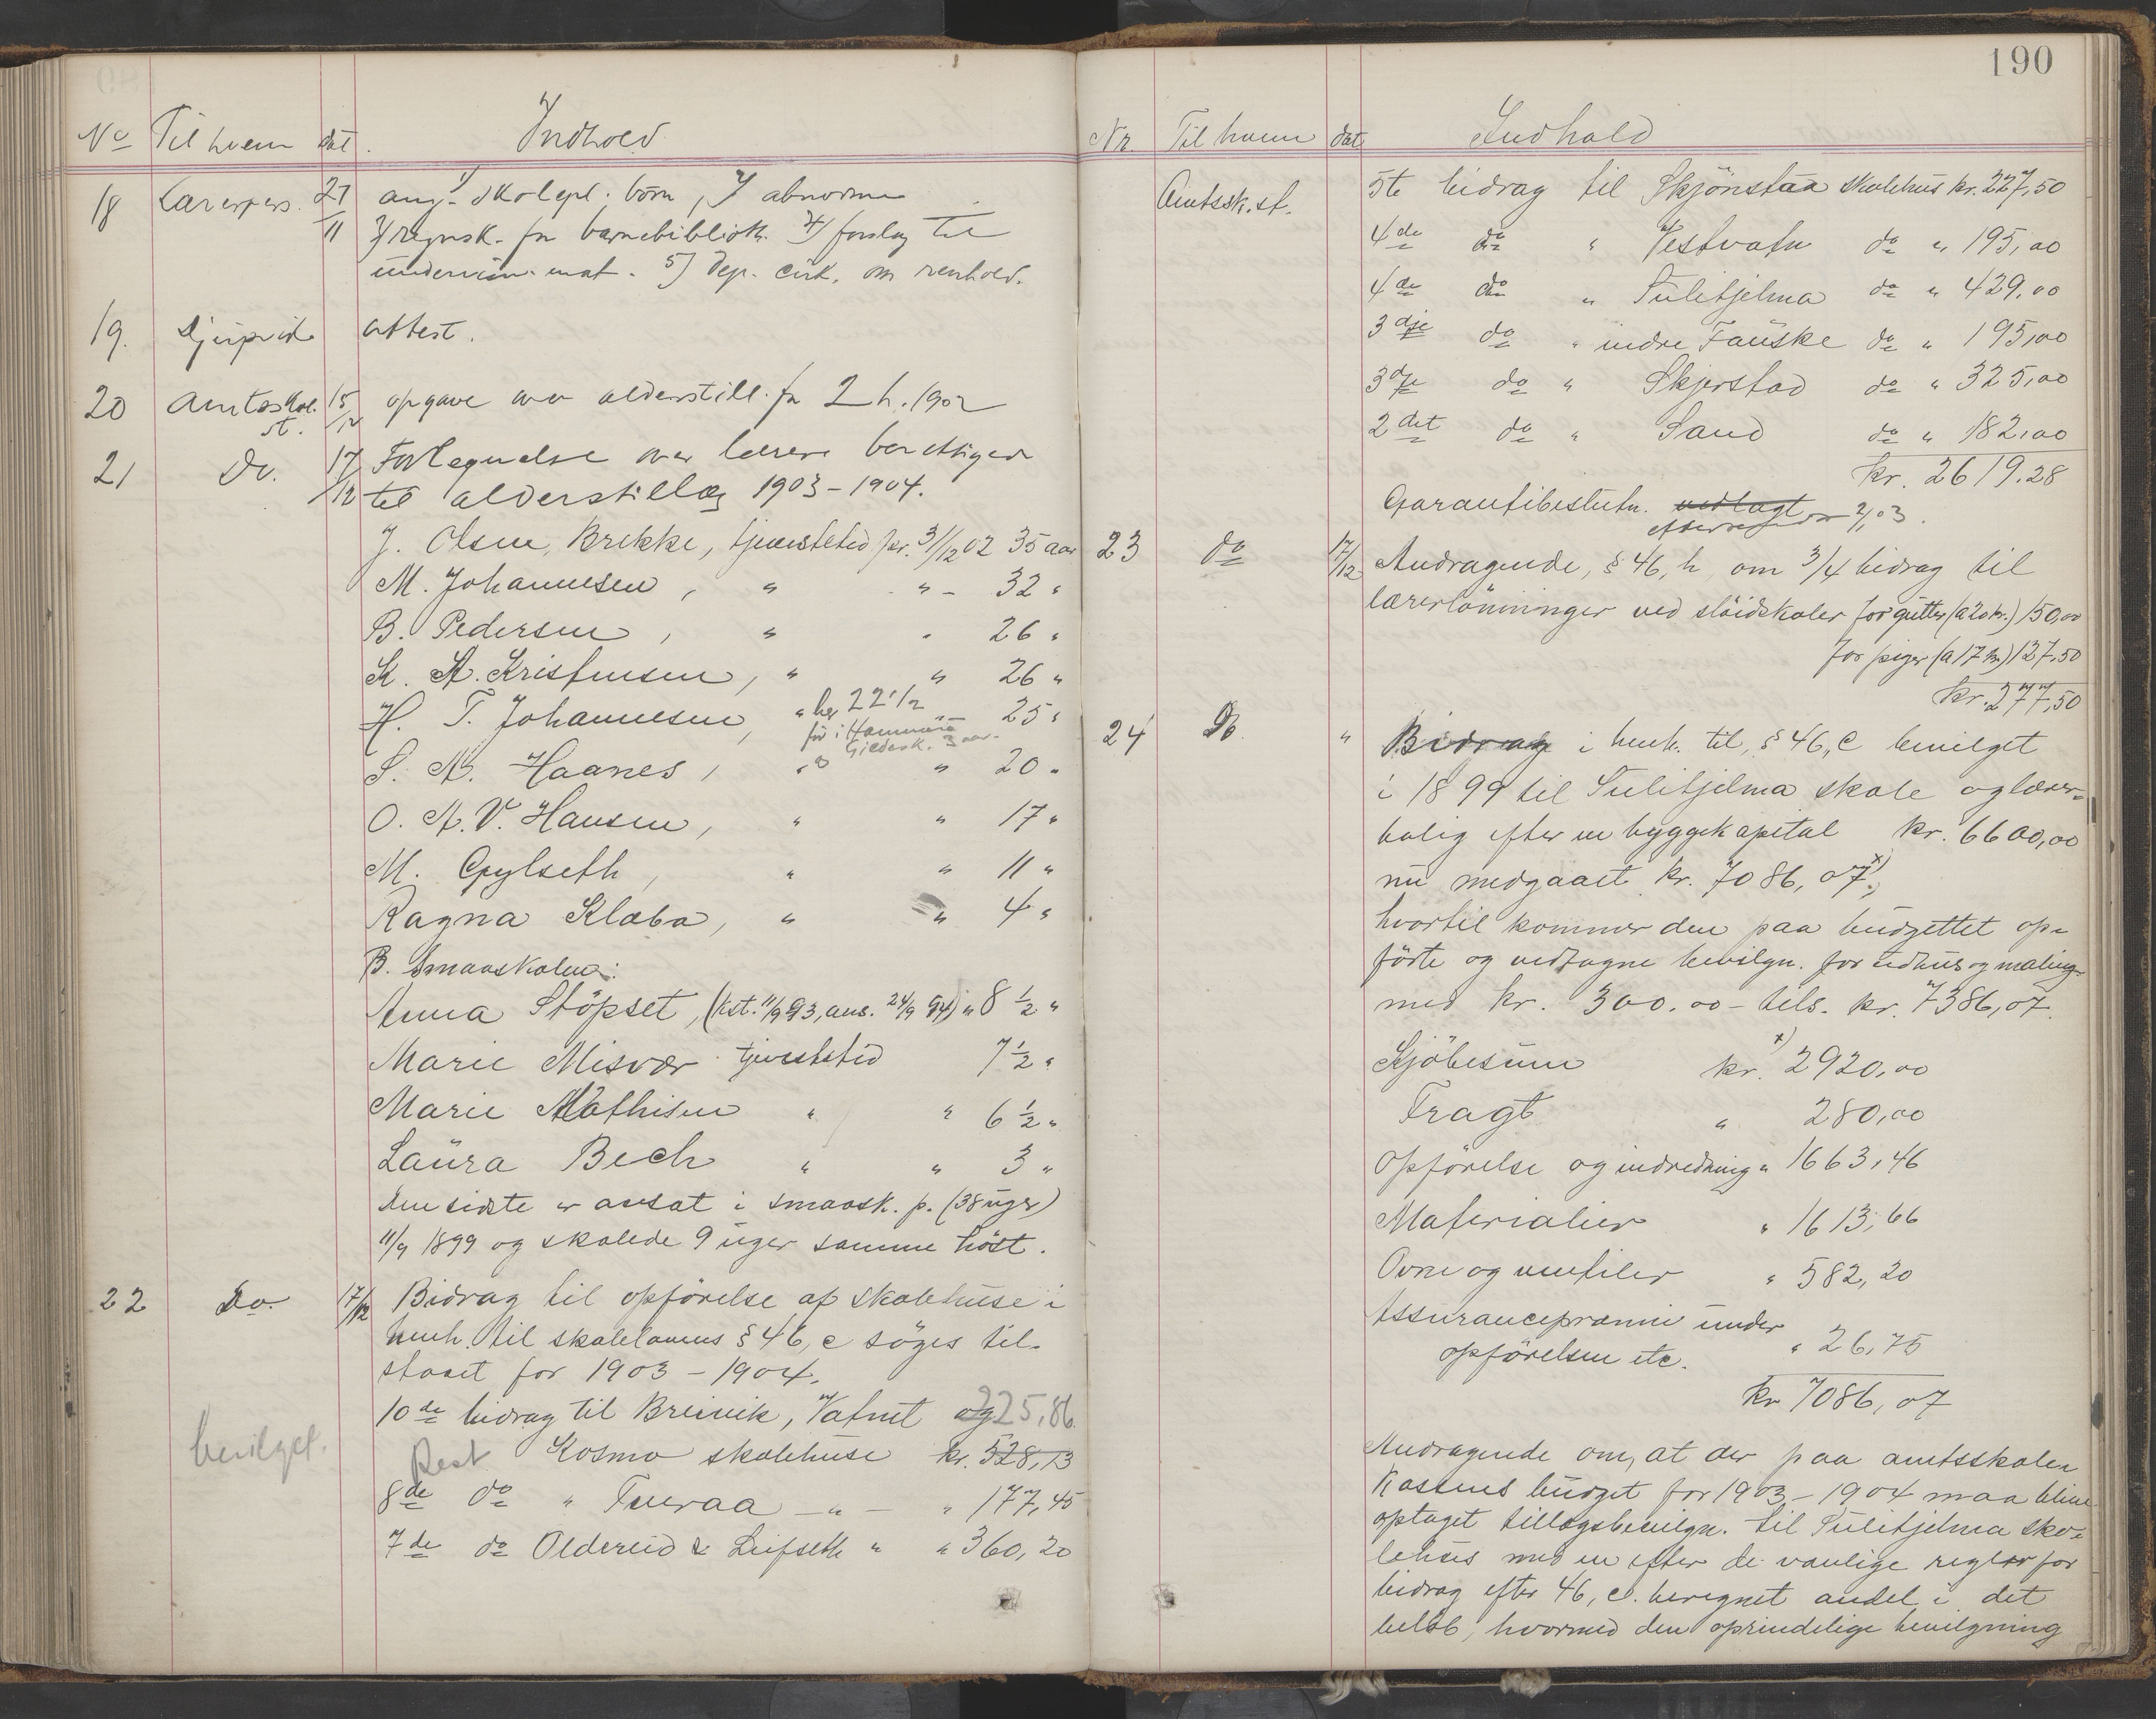 190
No Til hvem dat. Indhold
18 Lærerpers. 27/11 ang. 1) skolepl. börn, 2) abnorme
3) regnsk. for barnebiblioth. 4) forslag til
undervisn. mat. 5) Dep. cirk. om renhold.
19. Djupvik attest.
20 Amtsskol. st. 15/12 opgave over alderstill. for 2 h. 1902
21 Do. 17/12 Fortegnelse over lærere berettiget
til alderstillæg 1903-1904.
J. Olsen, Brekke, tjenestetid pr. 31/12 02 35 aar
M. Johannesen, " " - 32 "
B. Pedersen, " " 26 "
K. A. Kristensen, " " 26 "
H. T. Johannesen, " her 22 1/2 " 25 "
för i Hammerö
Gildesk. 3 aar.
S. A. Haanes, " " 20 "
O. A. V. Hansen, " " 17 "
M. Gylseth, " " 11 "
Ragna Klæbo, " " 4 "
B. Smaaskolen:
Anna Stöpset, (kst. 11/9 93, ans. 24/9 94) " 8 1/2 "
Marie Misvær tjenestetid 7 1/2 "
Marie Mathisen " " 6 1/2 "
Laura Bech " " 3 "
Den sidste er ansat i smaask. p. (38 uger)
11/9 1899 og skolede 9 uger samme höst.
22 Do. 17/12 Bidrag til opförelse af skolehuse i
henh. til skolelovens § 46, c söges til-
staaet for 1903-1904.
10de bidrag til Breivik, Vatnet og 225,86
bevilget. Rest Kosmo skolehuse kr. 528,13
8de do " Tveraa - " - " 177,45
7de do Oldereid & Leifseth " " 360,20
Nr. Til hvem dat. Indhold
Amtssk.st. 5te bidrag til Skjönstaa skolehus kr. 227,50
4de do " Vestvatn do " 195,00
4de do " Sulitjelma do " 429,00
3dje do " indre Fauske do " 195,00
3dje do " Skjerstad do " 325,00
2det do " Sand do " 182,00
kr. 2619.28
Garantibeslutn. vedlagt
eftersendes 2/1 03.
23 do 17/12 Andragende, § 46, h om 3/4 bidrag til
lærerlönninger ved slöidskoler for gutter (a 20 kr.) 150,00
for piger (a 17 kr.) 127,50
kr. 277,50
24 Do. " Bidrag i henh. til, § 46, c bevilget
i 1899 til Sulitjelma skole og lærer-
bolig efter en byggekapital kr. 6600,00
nu medgaaet kr. 7086,07 x)
hvortil kommer den paa budgettet op-
förte og vedtagne bevilgn. for udhus og maling
med kr. 300.00 - tils. kr. 7386,07.
Kjöbesum kr. x) 2920,00
Fragt " 280,00
Opförelse og indredning " 1663,46
Materialier " 1613,66
Ovne og ventiler " 582,20
Assurancepræmie under
opförelsen etc. " 26,75
kr 7086,07
Andragende om, at der paa amtsskole-
kassens budget for 1903-1904 maa blive
optaget tillægsbevilgn. til Sulitjelma sko-
lehus med en efter de vanlige regler for
bidrag efter 46, c. beregnet andel i det
belöb, hvormed den oprindelige bevilgning